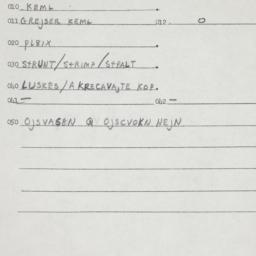 010 KEML
011 GREJSER KEML 012. 0
020 PLBIX
030 STRUNT/STRIMP/STPALT
040 LUSKES/A KRECAVAJTE KOP.
041 — 042 —
050 OJSVAGEN @ OJSCVOKN NEJN